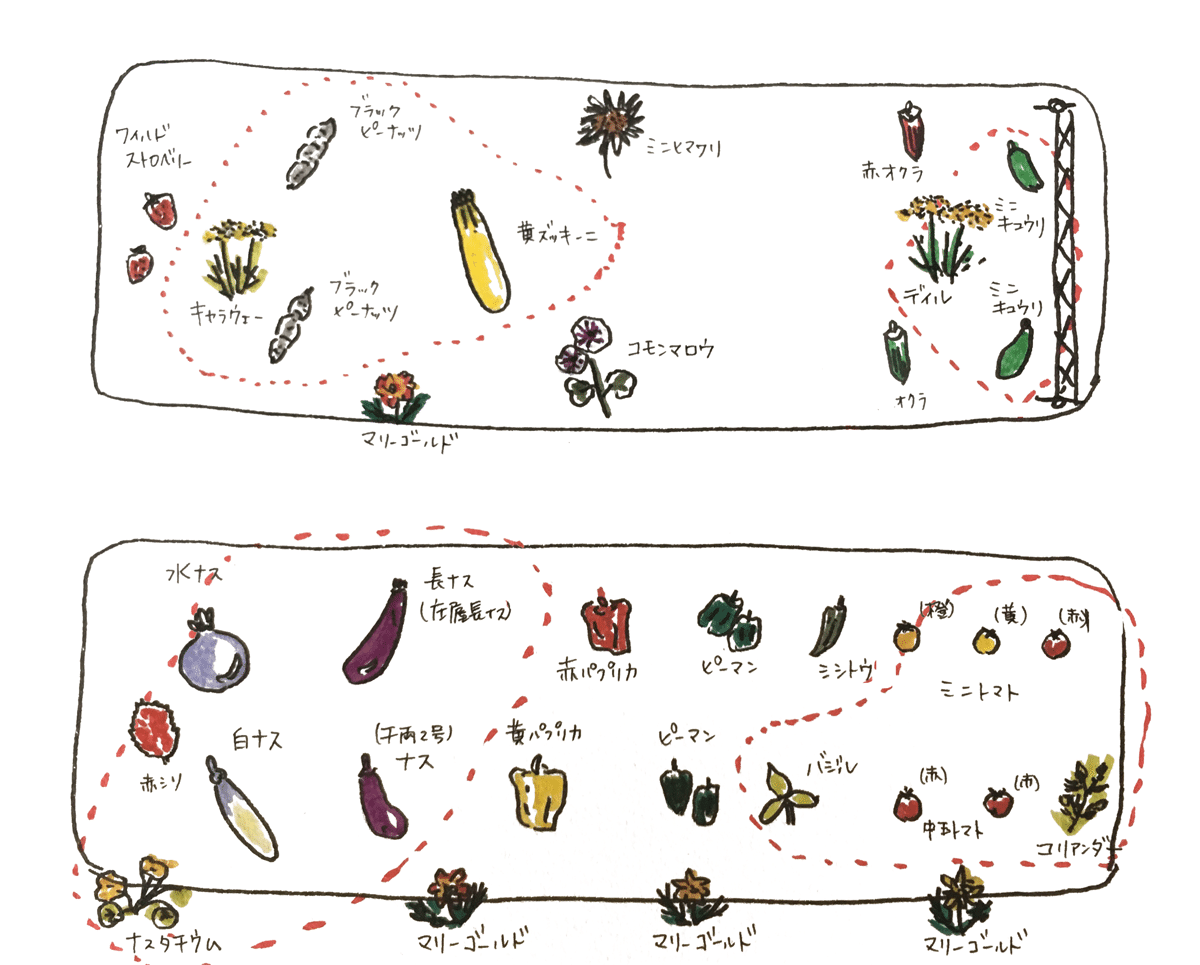 ワイルド
ストロベリー
ブラック
ピーナッツ
キャラウェー
ブラック
ピーナッツ
黄ズッキーニ
マリーゴールド
ミニヒマワリ
コモンマロウ
赤オクラ
ディル
オクラ
ミニ
キュウリ
ミニ
キュウリ
水ナス
長ナス
(在庵長ナス)
赤シソ
白ナス
(千両2号)
ナス
赤パプリカ
黄パプリカ
ピーマン
ピーマン
シシトウ
(橙)
(黄)
(赤)
ミニトマト
バジル
(赤)
(赤)
中玉トマト
コリアンダー
ナスタチウム
マリーゴールド
マリーゴールド
マリーゴールド